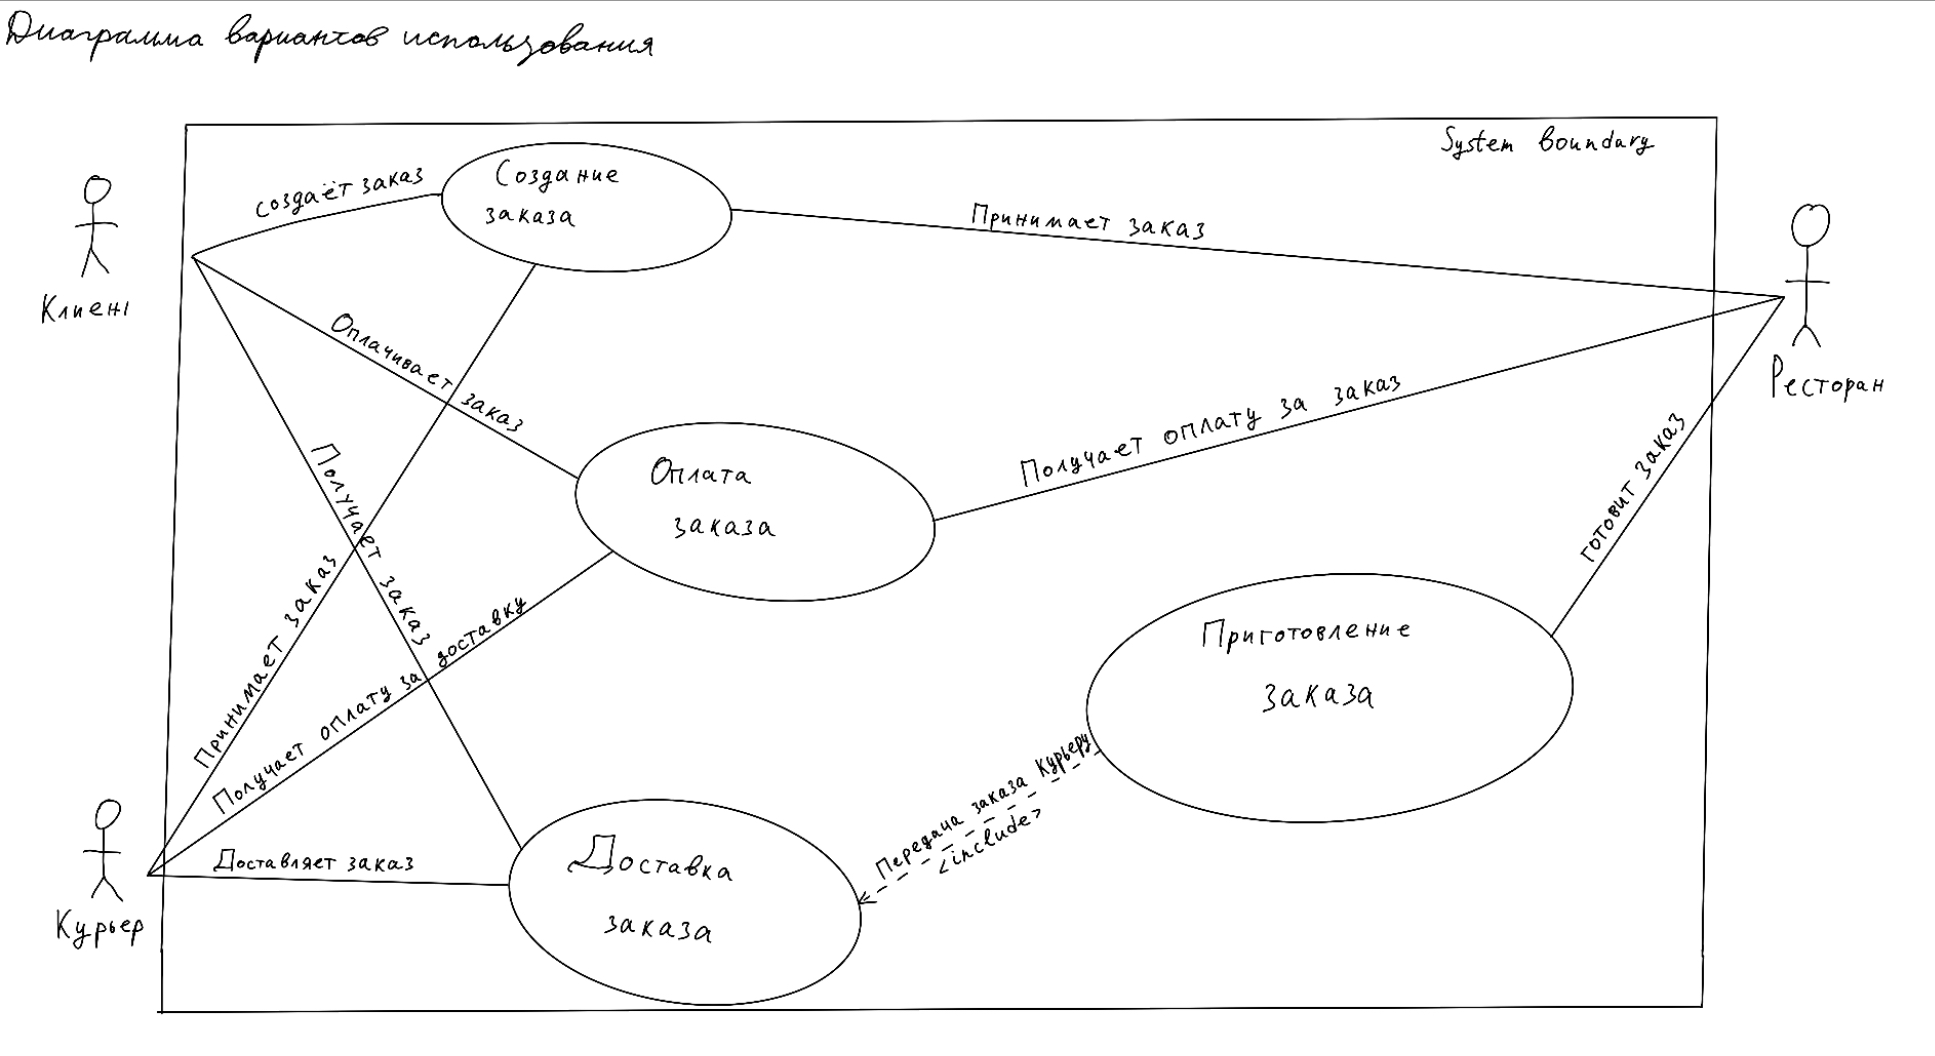 Диаграмма вариантов использования
System boundary
Клиент
создаёт заказ
Создание
заказа
Принимает заказ
Ресторан
Оплачивает заказ
Получает заказ
Оплата
заказа
Получает оплату за заказ
готовит заказ
Принимает заказ
Получает оплату за доставку
Приготовление
заказа
Передача заказа Курьеру
<include>
Курьер
Доставляет заказ
Доставка
заказа